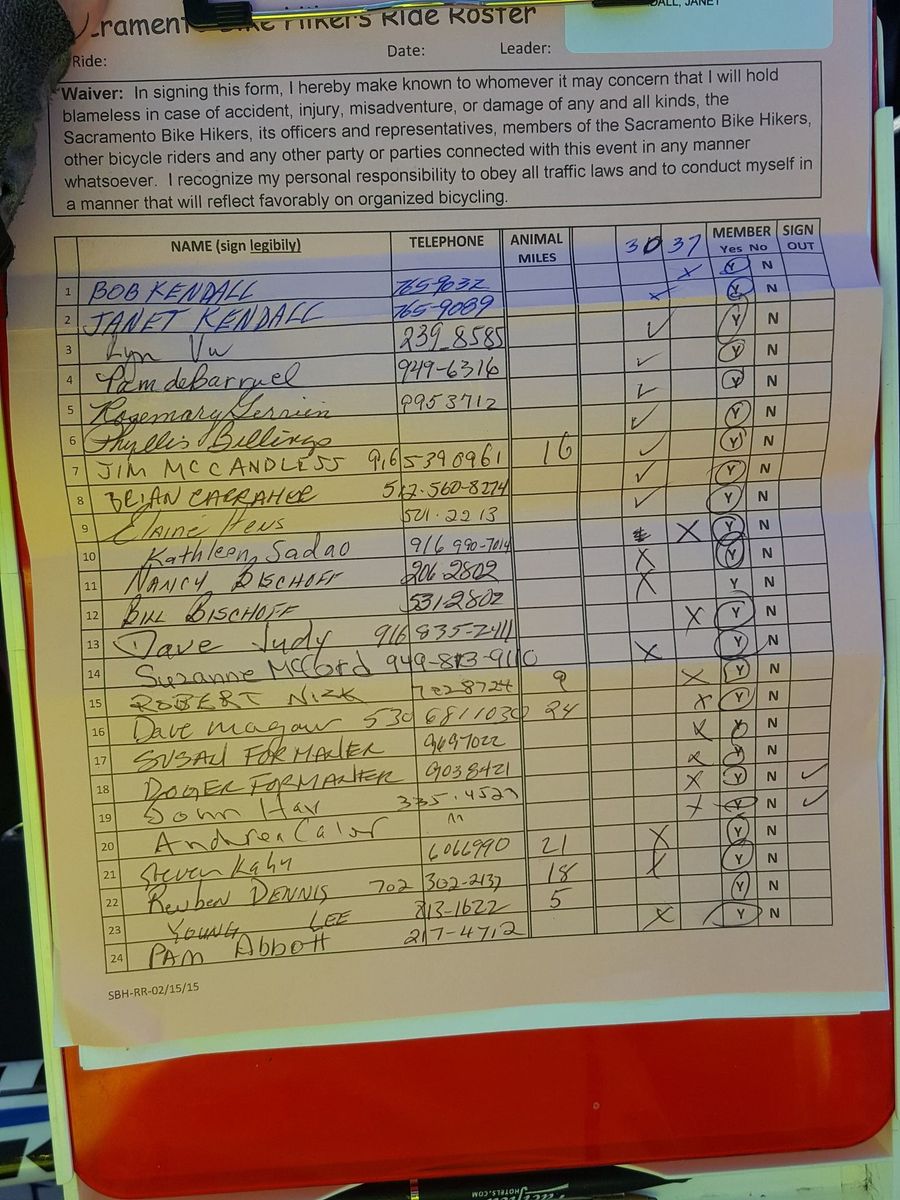 Sacramento Bike Hikers Ride Roster
DALL, JANET
Ride: Date: Leader:
Waiver: In signing this form, I hereby make known to whomever it may concern that I will hold
blameless in case of accident, injury, misadventure, or damage of any and all kinds, the
Sacramento Bike Hikers, its officers and representatives, members of the Sacramento Bike Hikers,
other bicycle riders and any other party or parties connected with this event in any manner
whatsoever. I recognize my personal responsibility to obey all traffic laws and to conduct myself in
a manner that will reflect favorably on organized bicycling.
NAME (sign legibily) TELEPHONE ANIMAL MILES 30 37 MEMBER Yes No SIGN OUT
1 BOB KENDALL 765-9632 X Y N
2 JANET KENDALL 765-9089 X Y N
3 Lyn Vu 239-8585 ✓ Y N
4 Pam deBarruel 949-6316 ✓ Y N
5 Rosemary 9953712 ✓ Y N
6 Phyllis Billings ✓ Y N
7 JIM MCCANDLESS 916 539 0961 16 ✓ Y N
8 BRIAN 512-560-8274 ✓ Y N
9 Elaine 501-2213 ✓ Y N
10 Kathleen Sadao 916 990-7014 X Y N
11 NANCY BISCHOFF 206-2802 X Y N
12 BILL BISCHOFF 531-2802 X Y N
13 Dave Judy 916 835-2411 X Y N
14 Suzanne McCord 949-813-9110 X Y N
15 ROBERT 9 X Y N
16 Dave Magaw 530 6811030 24 X Y N
17 SUSAN FORMANEK 9697022 X Y N
18 ROGER FORMANEK 9038421 X Y N
19 John Hax 335-4529 X Y N ✓
20 Andrea X Y N ✓
21 Steven Kahn 6066990 21 X Y N
22 Reuben DENNIS 702 302-2137 18 Y N
23 YOUNG LEE 813-1622 5 Y N
24 PAM Abbott 217-4712 X Y N
SBH-RR-02/15/15
HOTELS.COM